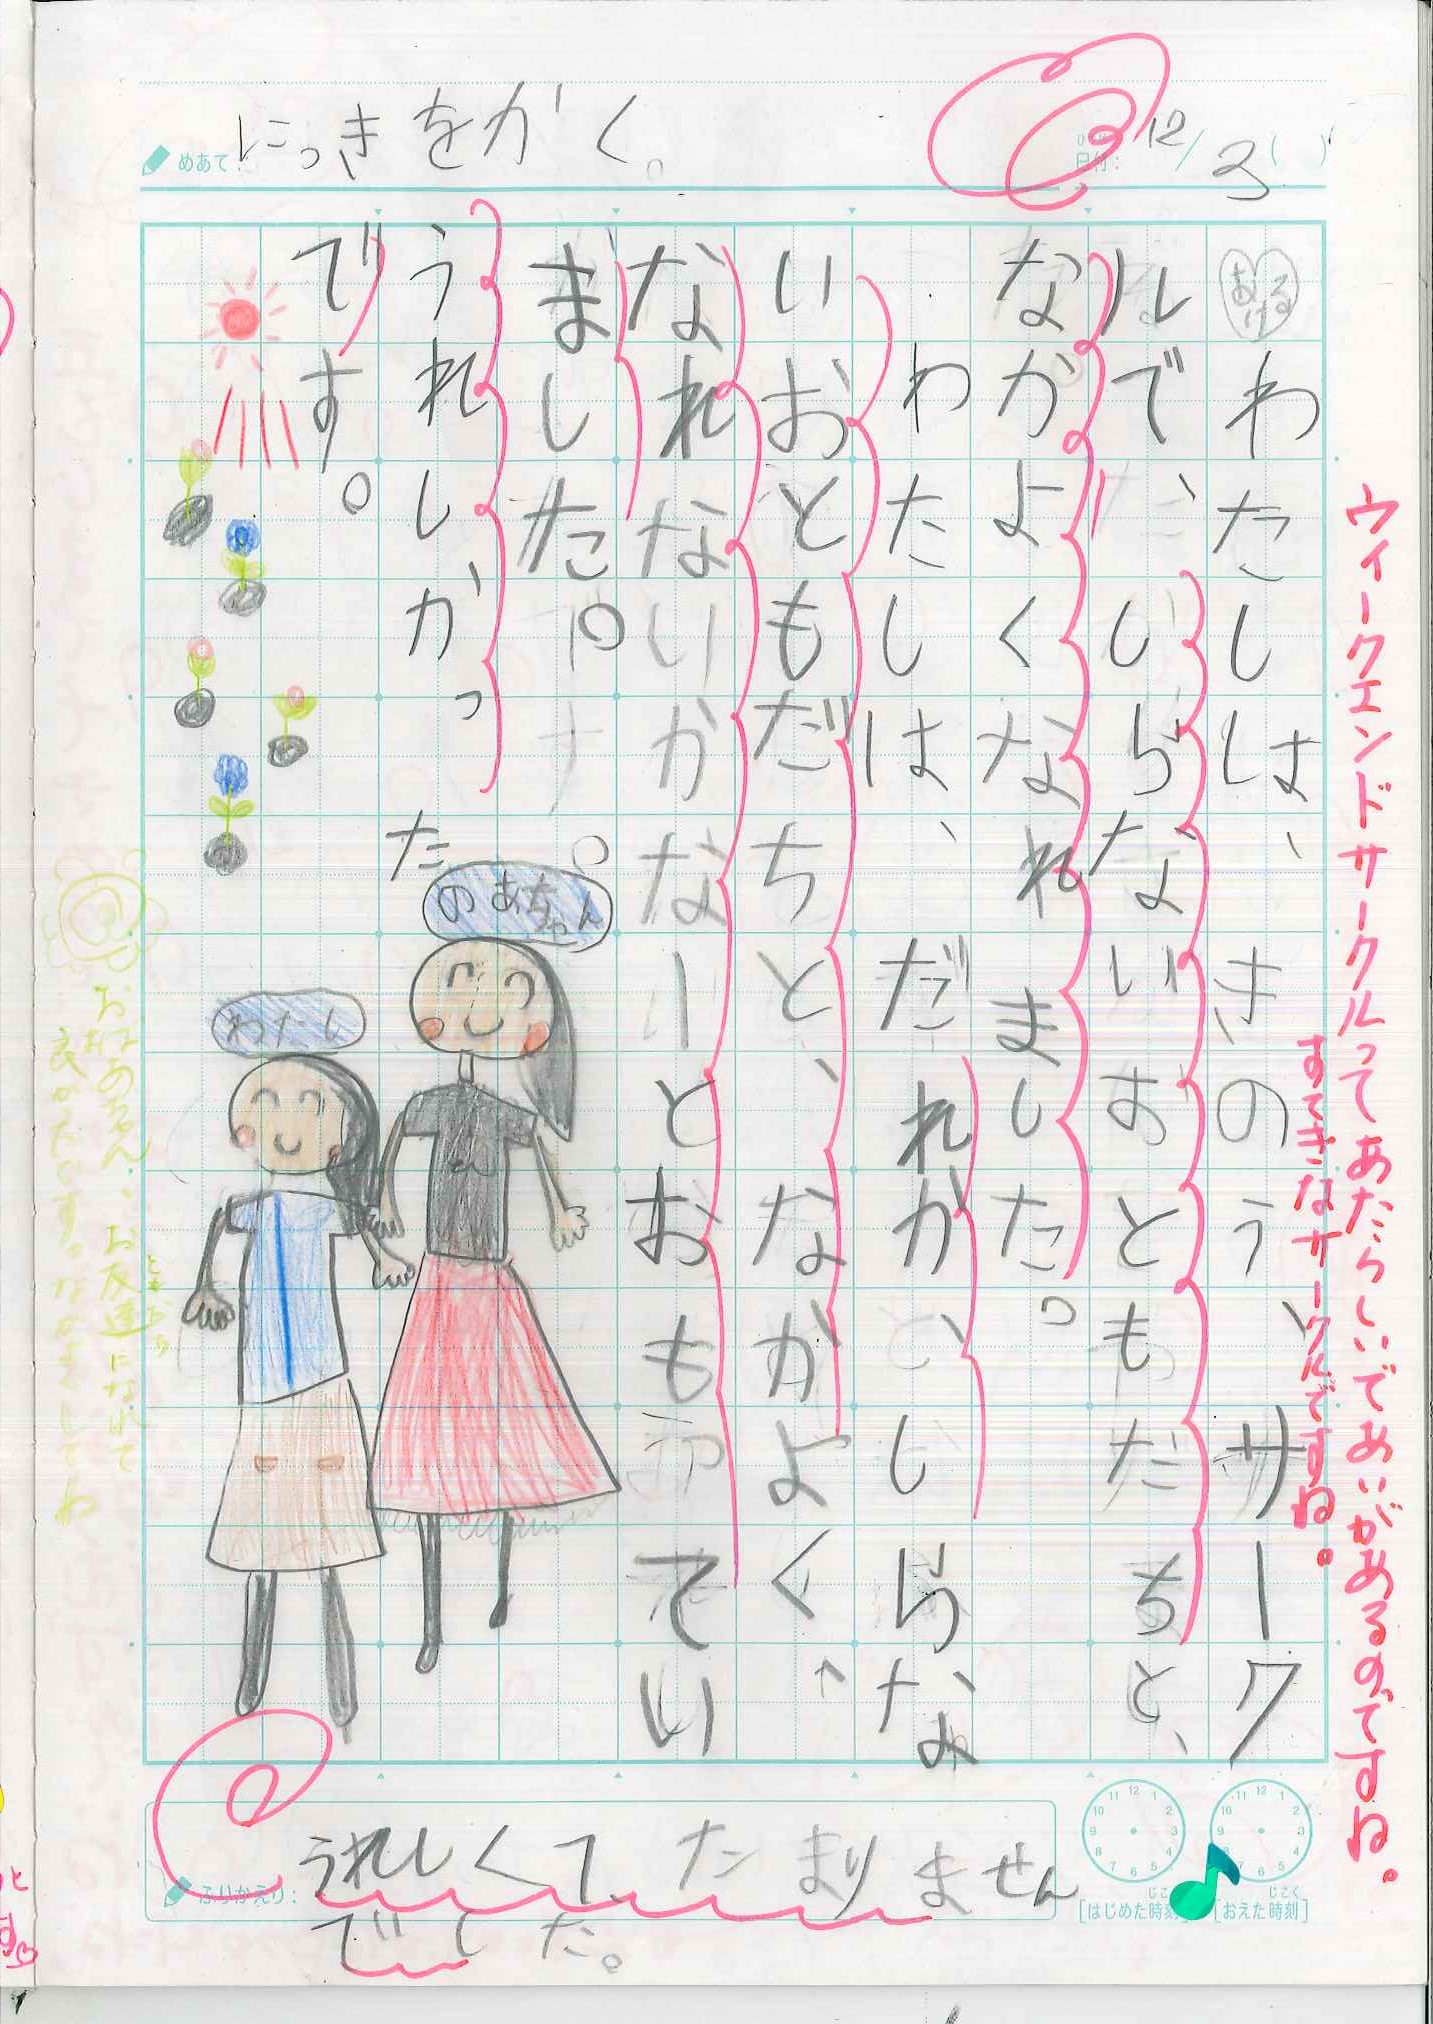 めあて にっきをかく。
日付: 12/3( )
あける
わたしは、きのう、サーク
ルで、しらないおともだちと、
なかよくなれました。
わたしは、だれか、しらな
いおともだちと、なかよく
なれないかなーとおもてい
ました。
うれしかった
です。
のあちゃん
わたし
ふりかえり: うれしくて、たまりません
でした。
[はじめた時刻]
じこく
[おえた時刻]
じこく
ウィークエンドサークルってあたらしいであいがあるのですね。
すてきなサークルですね。
お友達になれて
ともだち
良かったです。なかよくしてね